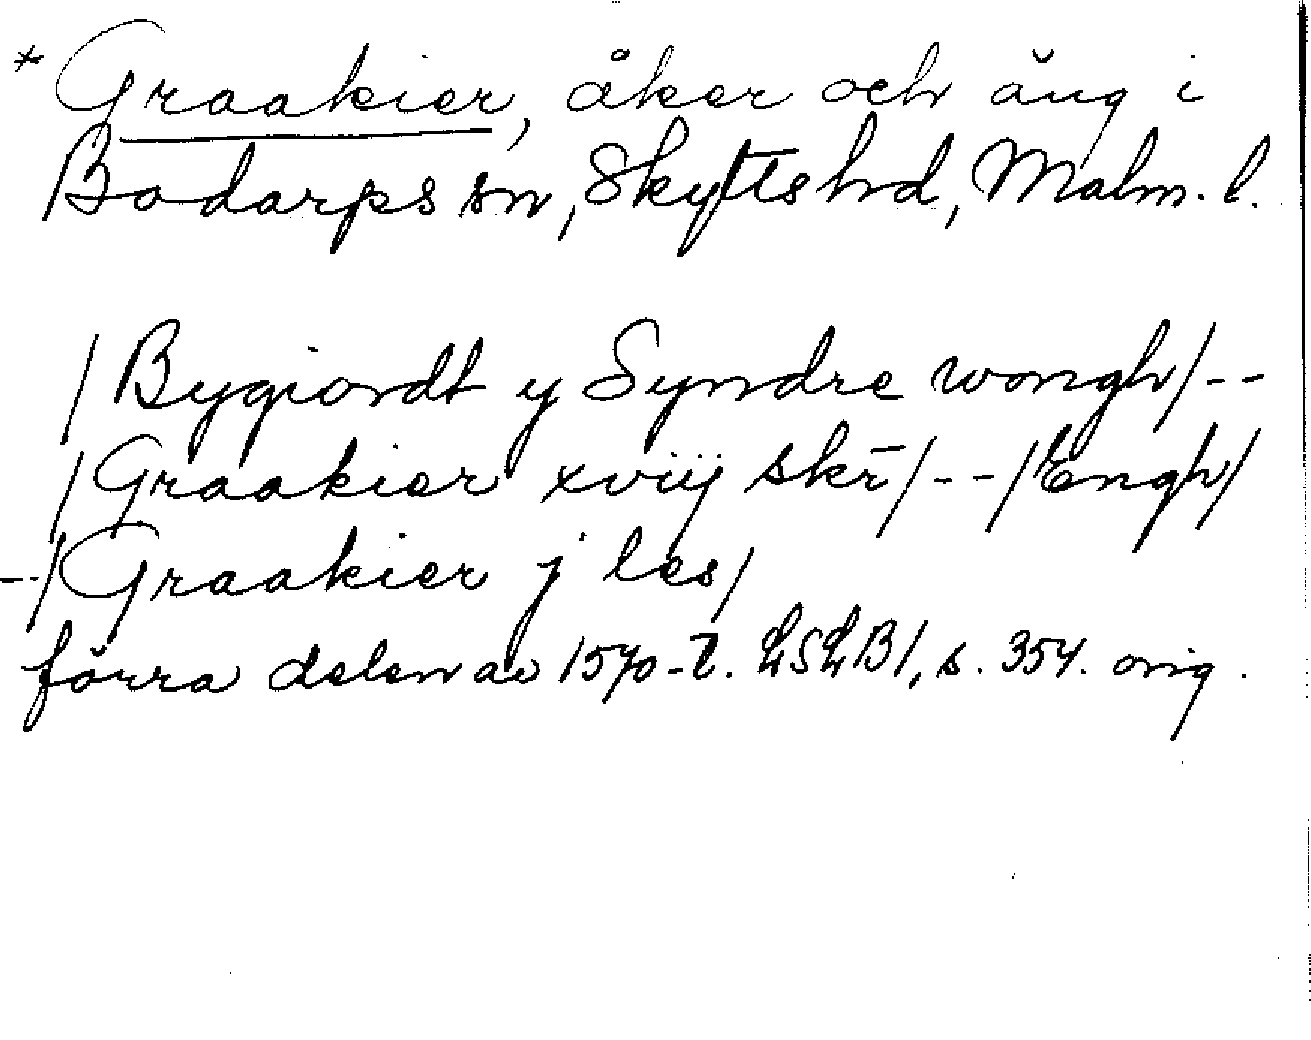 * Graakier, åker och äng i
Bodarps sn, Skytts hd, Malm. l.
/Bygiordt y Syndre wongh/--
/Graakier xviij skr̄/--/Engh/
--/Graakier j les/
förra delen av 1570-t. LSLB1, s. 354. orig.